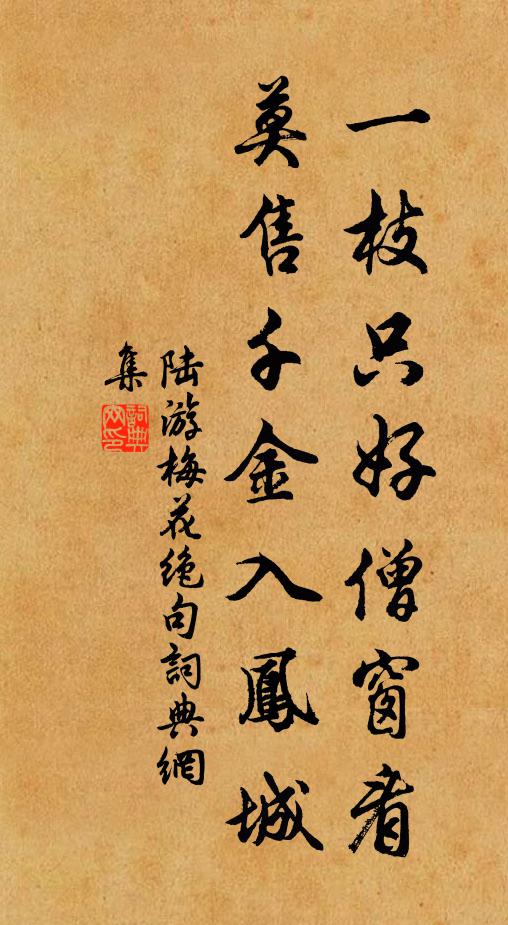 一枝只好僧窗看
莫售千金入鳳城
陸游梅花絕句詞典網
集
詞典
网印